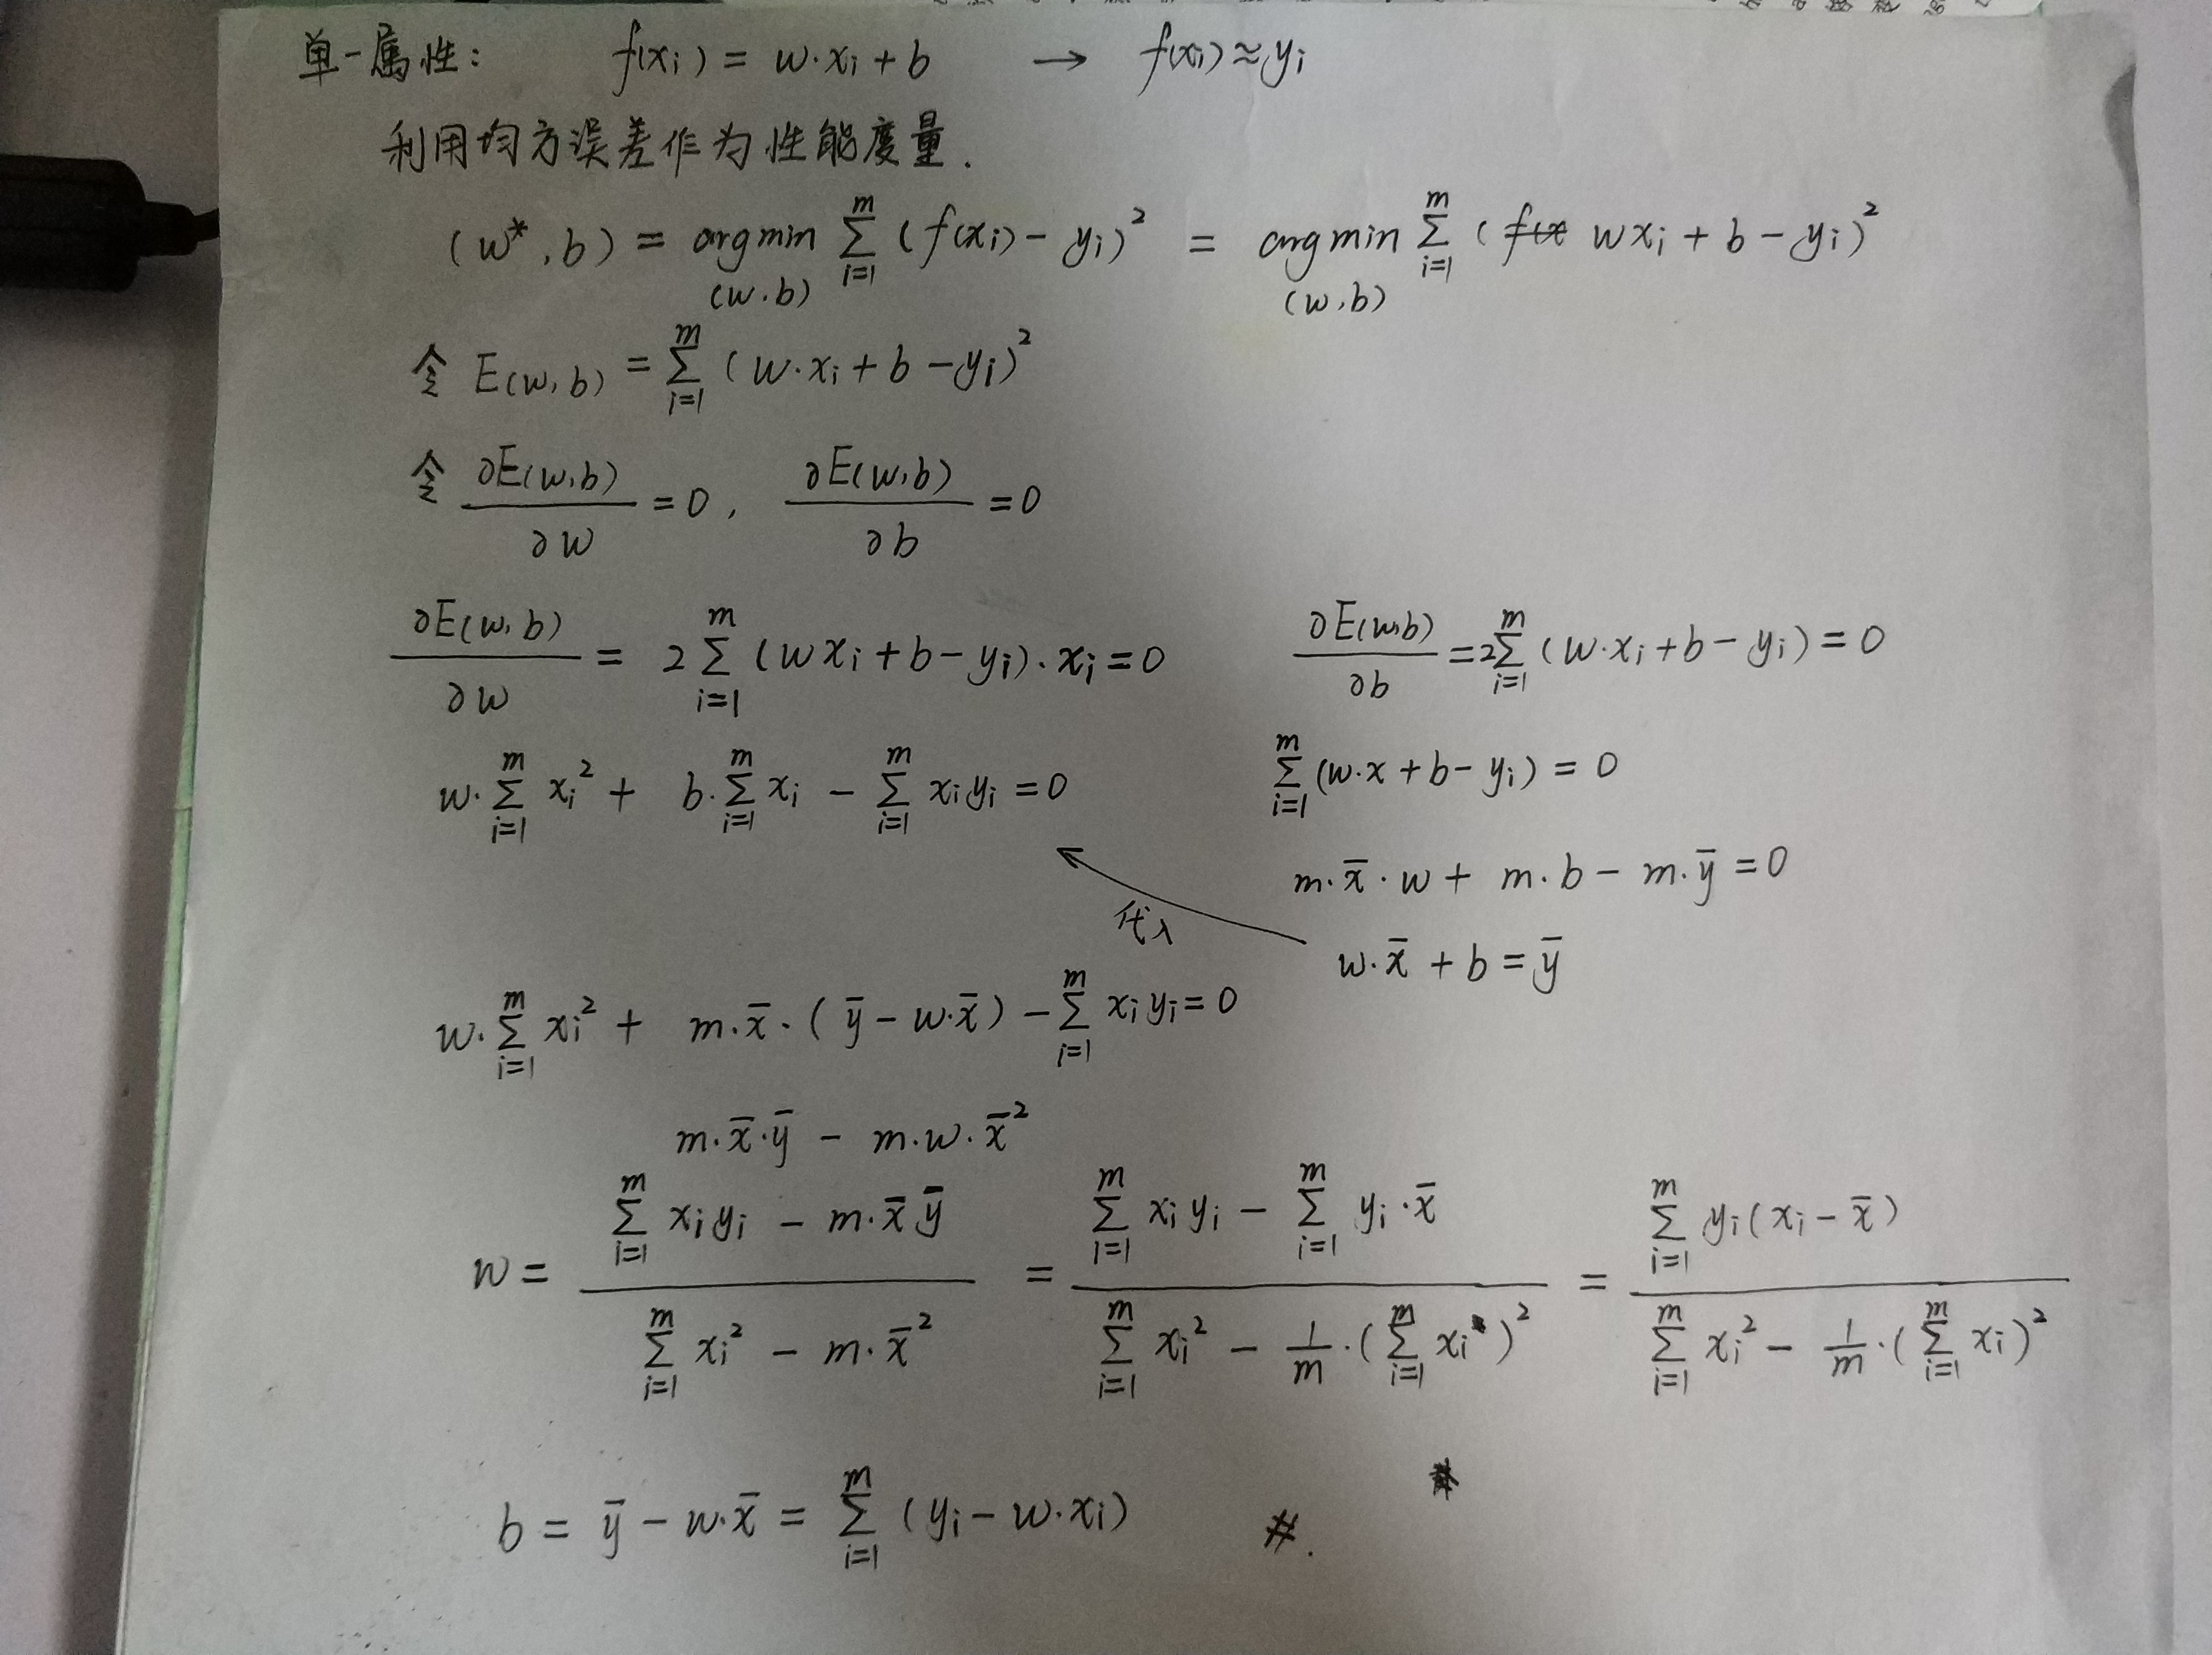 单一属性: f(xi) = w·xi + b → f(xi) ≈ yi
利用均方误差作为性能度量.
(w*, b) = arg min_(w.b) Σ_{i=1}^{m} (f(xi) - yi)² = arg min_(w,b) Σ_{i=1}^{m} (f(x wxi + b - yi)²
令 E(w,b) = Σ_{i=1}^{m} (w·xi + b - yi)²
令 ∂E(w,b)/∂w = 0, ∂E(w,b)/∂b = 0
∂E(w,b)/∂w = 2 Σ_{i=1}^{m} (wxi + b - yi)·xi = 0
∂E(w,b)/∂b = 2Σ_{i=1}^{m} (w·xi + b - yi) = 0
w·Σ_{i=1}^{m} xi² + b·Σ_{i=1}^{m} xi - Σ_{i=1}^{m} xiyi = 0
Σ_{i=1}^{m} (w·x + b - yi) = 0
m·x̄·w + m·b - m·ȳ = 0
代入
w·x̄ + b = ȳ
w·Σ_{i=1}^{m} xi² + m·x̄·(ȳ - w·x̄) - Σ_{i=1}^{m} xiyi = 0
m·x̄·ȳ - m·w·x̄²
w = (Σ_{i=1}^{m} xiyi - m·x̄ȳ) / (Σ_{i=1}^{m} xi² - m·x̄²) = (Σ_{i=1}^{m} xiyi - Σ_{i=1}^{m} yi·x̄) / (Σ_{i=1}^{m} xi² - 1/m·(Σ_{i=1}^{m} xi)²) = (Σ_{i=1}^{m} yi(xi - x̄)) / (Σ_{i=1}^{m} xi² - 1/m·(Σ_{i=1}^{m} xi)²)
b = ȳ - w·x̄ = Σ_{i=1}^{m} (yi - w·xi) #.